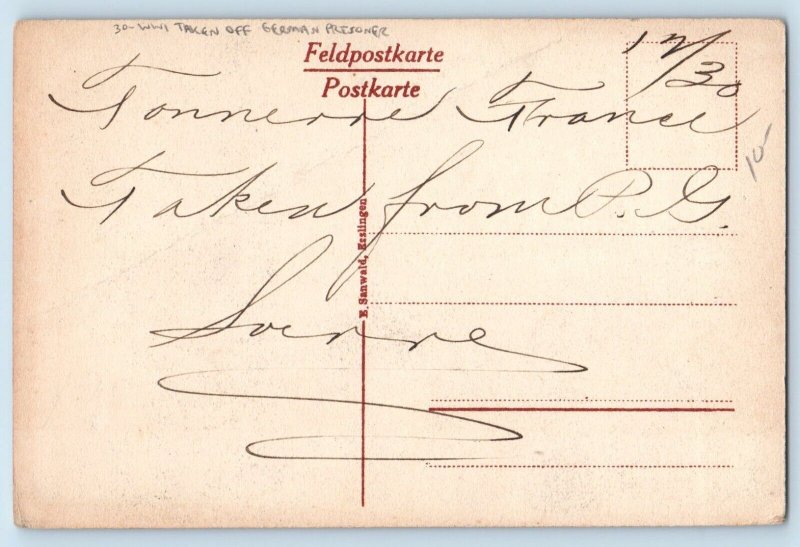 30- WWI TAKEN OFF GERMAN PRISONER
Feldpostkarte
Postkarte
12/30
Tonnerre France
10-
Taken from P.G.
E. Sanwald, Esslingen